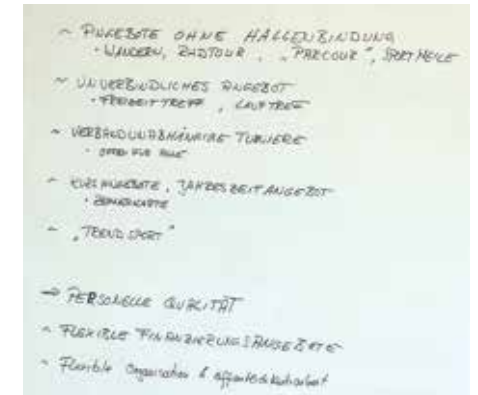 ~ ANGEBOTE OHNE HALLENBINDUNG
· WANDERN, RADTOUR, „PARCOUR", SPORTMEILE
~ UNVERBINDLICHES ANGEBOT
· FREIZEITTREFF, LAUFTREFF
~ VERBANDUNABHÄNGIGE TURNIERE
· OFFEN FÜR ALLE
~ KURSANGEBOTE, JAHRESZEITANGEBOT
~ „TRENDSPORT"
→ PERSONELLE QUALITÄT
~ FLEXIBLE FINANZIERUNGSANGEBOTE
~ Flexible Organisation & Öffentlichkeitsarbeit